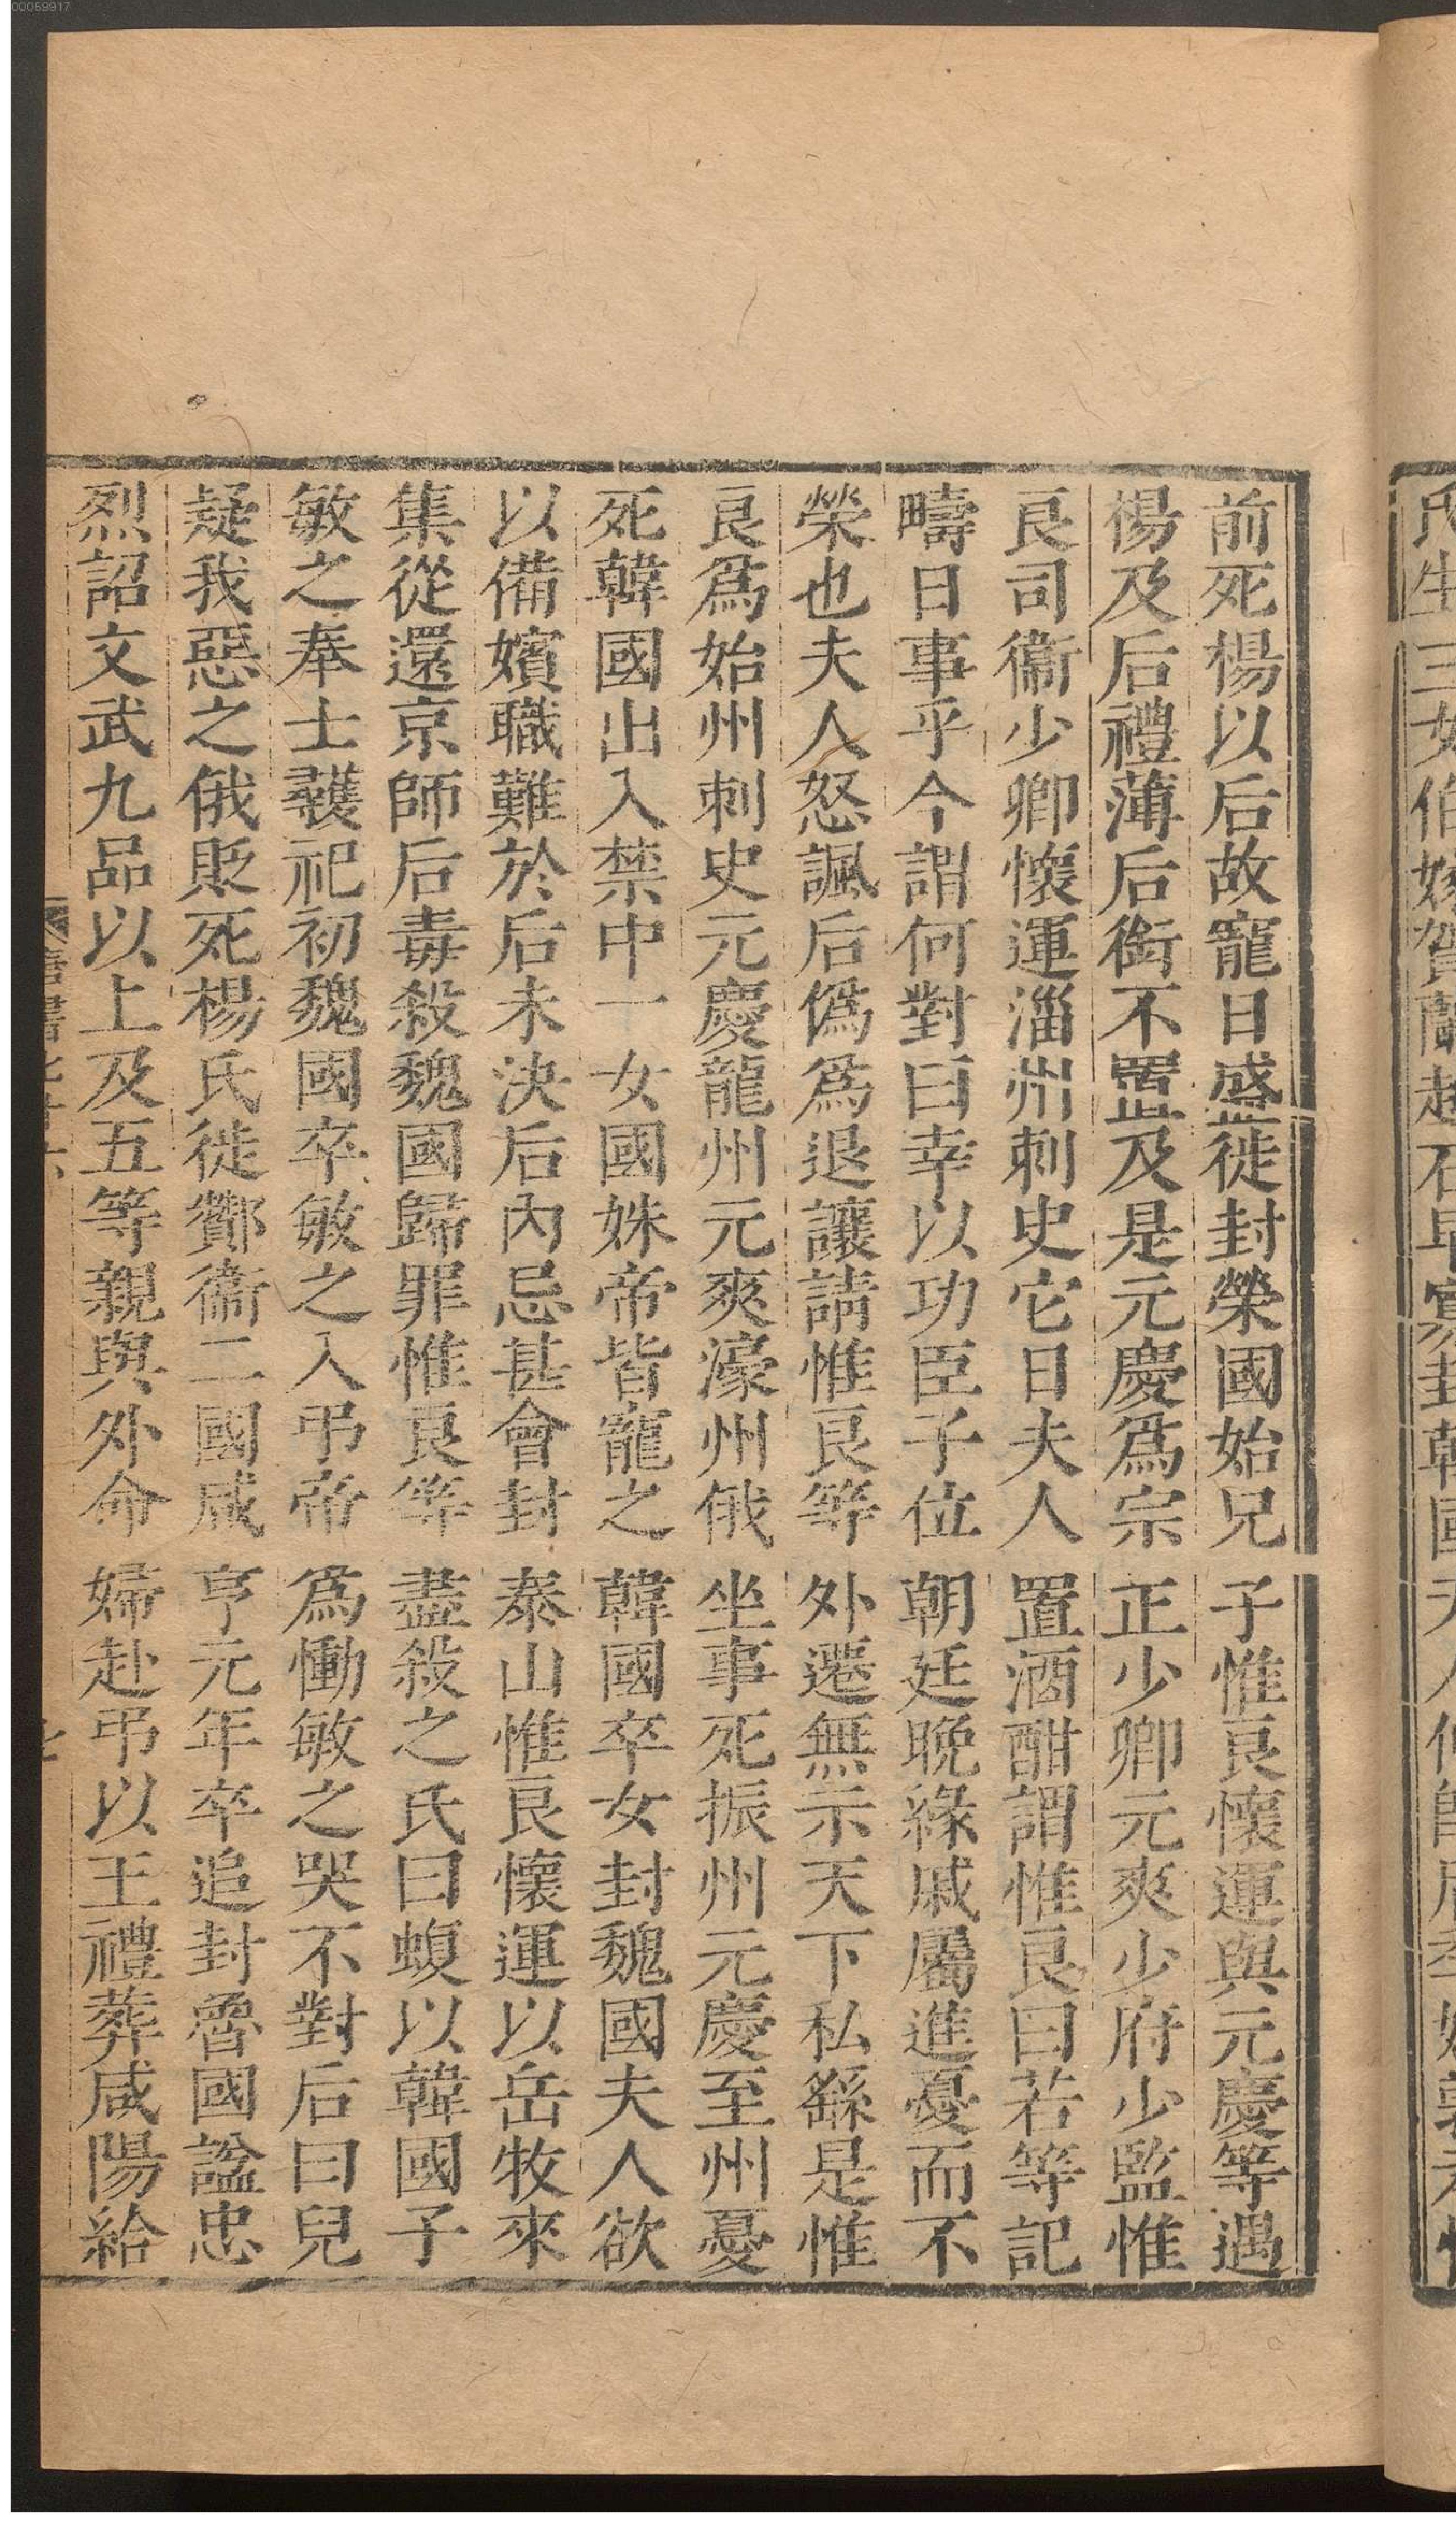 00059917
前死楊以后故寵日盛徙封榮國始兄子惟良懷運與元慶等遇
楊及后禮薄后銜不置及是元慶爲宗正少卿元爽少府少監惟
良司衞少卿懷運淄州刺史它日夫人置酒酣謂惟良曰若等記
疇日事乎今謂何對曰幸以功臣子位朝廷晚緣戚屬進憂而不
榮也夫人怒諷后僞爲退讓請惟良等外遷無示天下私繇是惟
良爲始州刺史元慶龍州元爽濠州俄坐事死振州元慶至州憂
死韓國出入禁中一女國姝帝皆寵之韓國卒女封魏國夫人欲
以備嬪職難於后未決后內忌甚會封泰山惟良懷運以岳牧來
集從還京師后毒殺魏國歸罪惟良等盡殺之氏曰蝮以韓國子
敏之奉士彠祀初魏國卒敏之入弔帝爲慟敏之哭不對后曰兒
疑我惡之俄貶死楊氏徙酇衞二國咸亨元年卒追封魯國諡忠
烈詔文武九品以上及五等親與外命婦赴弔以王禮葬咸陽給